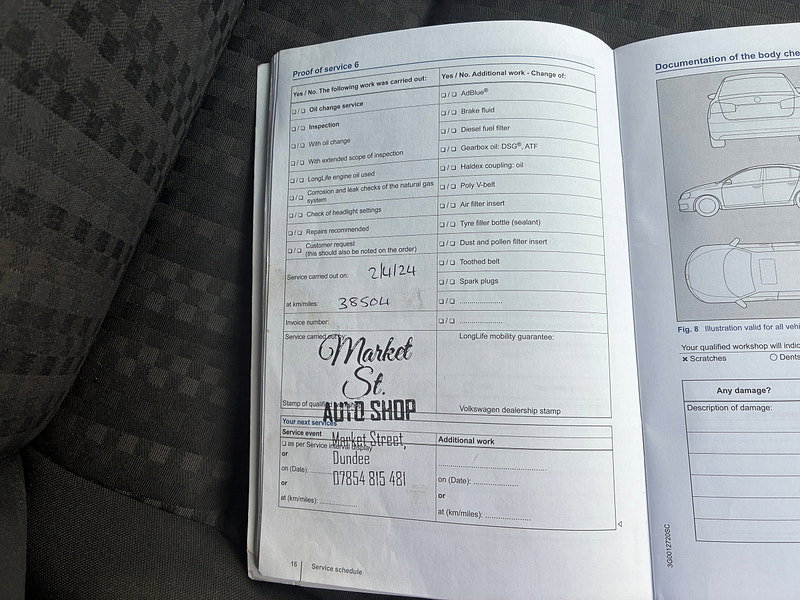 Proof of service 6
Yes / No. The following work was carried out:
❑ / ❑ Oil change service
❑ / ❑ Inspection
❑ / ❑ With oil change
❑ / ❑ With extended scope of inspection
❑ / ❑ LongLife engine oil used
❑ / ❑ Corrosion and leak checks of the natural gas
system
❑ / ❑ Check of headlight settings
❑ / ❑ Repairs recommended
❑ / ❑ Customer request
(this should also be noted on the order)
Service carried out on: 2/4/24
at km/miles: 38504
Invoice number:
Service carried out by:
Market
St.
Stamp of qualified
AUTO SHOP
Yes / No. Additional work - Change of:
❑ / ❑ AdBlue®
❑ / ❑ Brake fluid
❑ / ❑ Diesel fuel filter
❑ / ❑ Gearbox oil: DSG®, ATF
❑ / ❑ Haldex coupling: oil
❑ / ❑ Poly V-belt
❑ / ❑ Air filter insert
❑ / ❑ Tyre filler bottle (sealant)
❑ / ❑ Dust and pollen filter insert
❑ / ❑ Toothed belt
❑ / ❑ Spark plugs
❑ / ❑ ................
❑ / ❑ ................
LongLife mobility guarantee:
Volkswagen dealership stamp
Your next services
Service event
❑ as per Service interval display
or
on (Date): ................
or
at (km/miles): ................
Market Street,
Dundee
07854 815 481
Additional work
................
on (Date): ................
or
at (km/miles): ................
16 Service schedule
Documentation of the body che
Fig. 8 Illustration valid for all vehi
Your qualified workshop will indic
✕ Scratches ○ Dents
Any damage?
Description of damage:
3G0012720SC